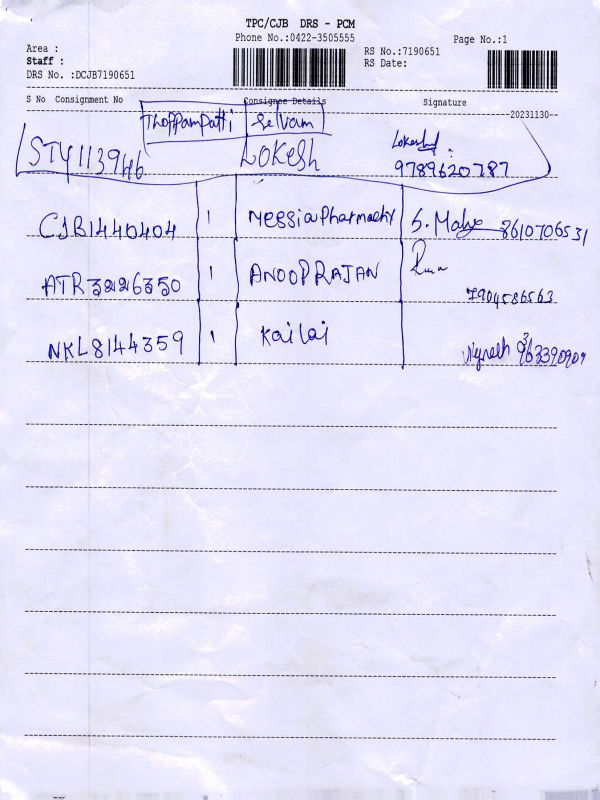 TPC/CJB DRS - PCM
Phone No.:0422-3505555
Page No.:1
Area :
Staff :
DRS No. :DCJB7190651
RS No.:7190651
RS Date:
S No Consignment No Consignee Details Signature
20231130
Thoppampatti Selvam
STY1113946 LOKESH 9789620787
CJB1440404 1 Messia Pharmacy S. 8610706531
ATR 1 ANOOPRAJAN 7904586563
NKL8144359 1 Kailai